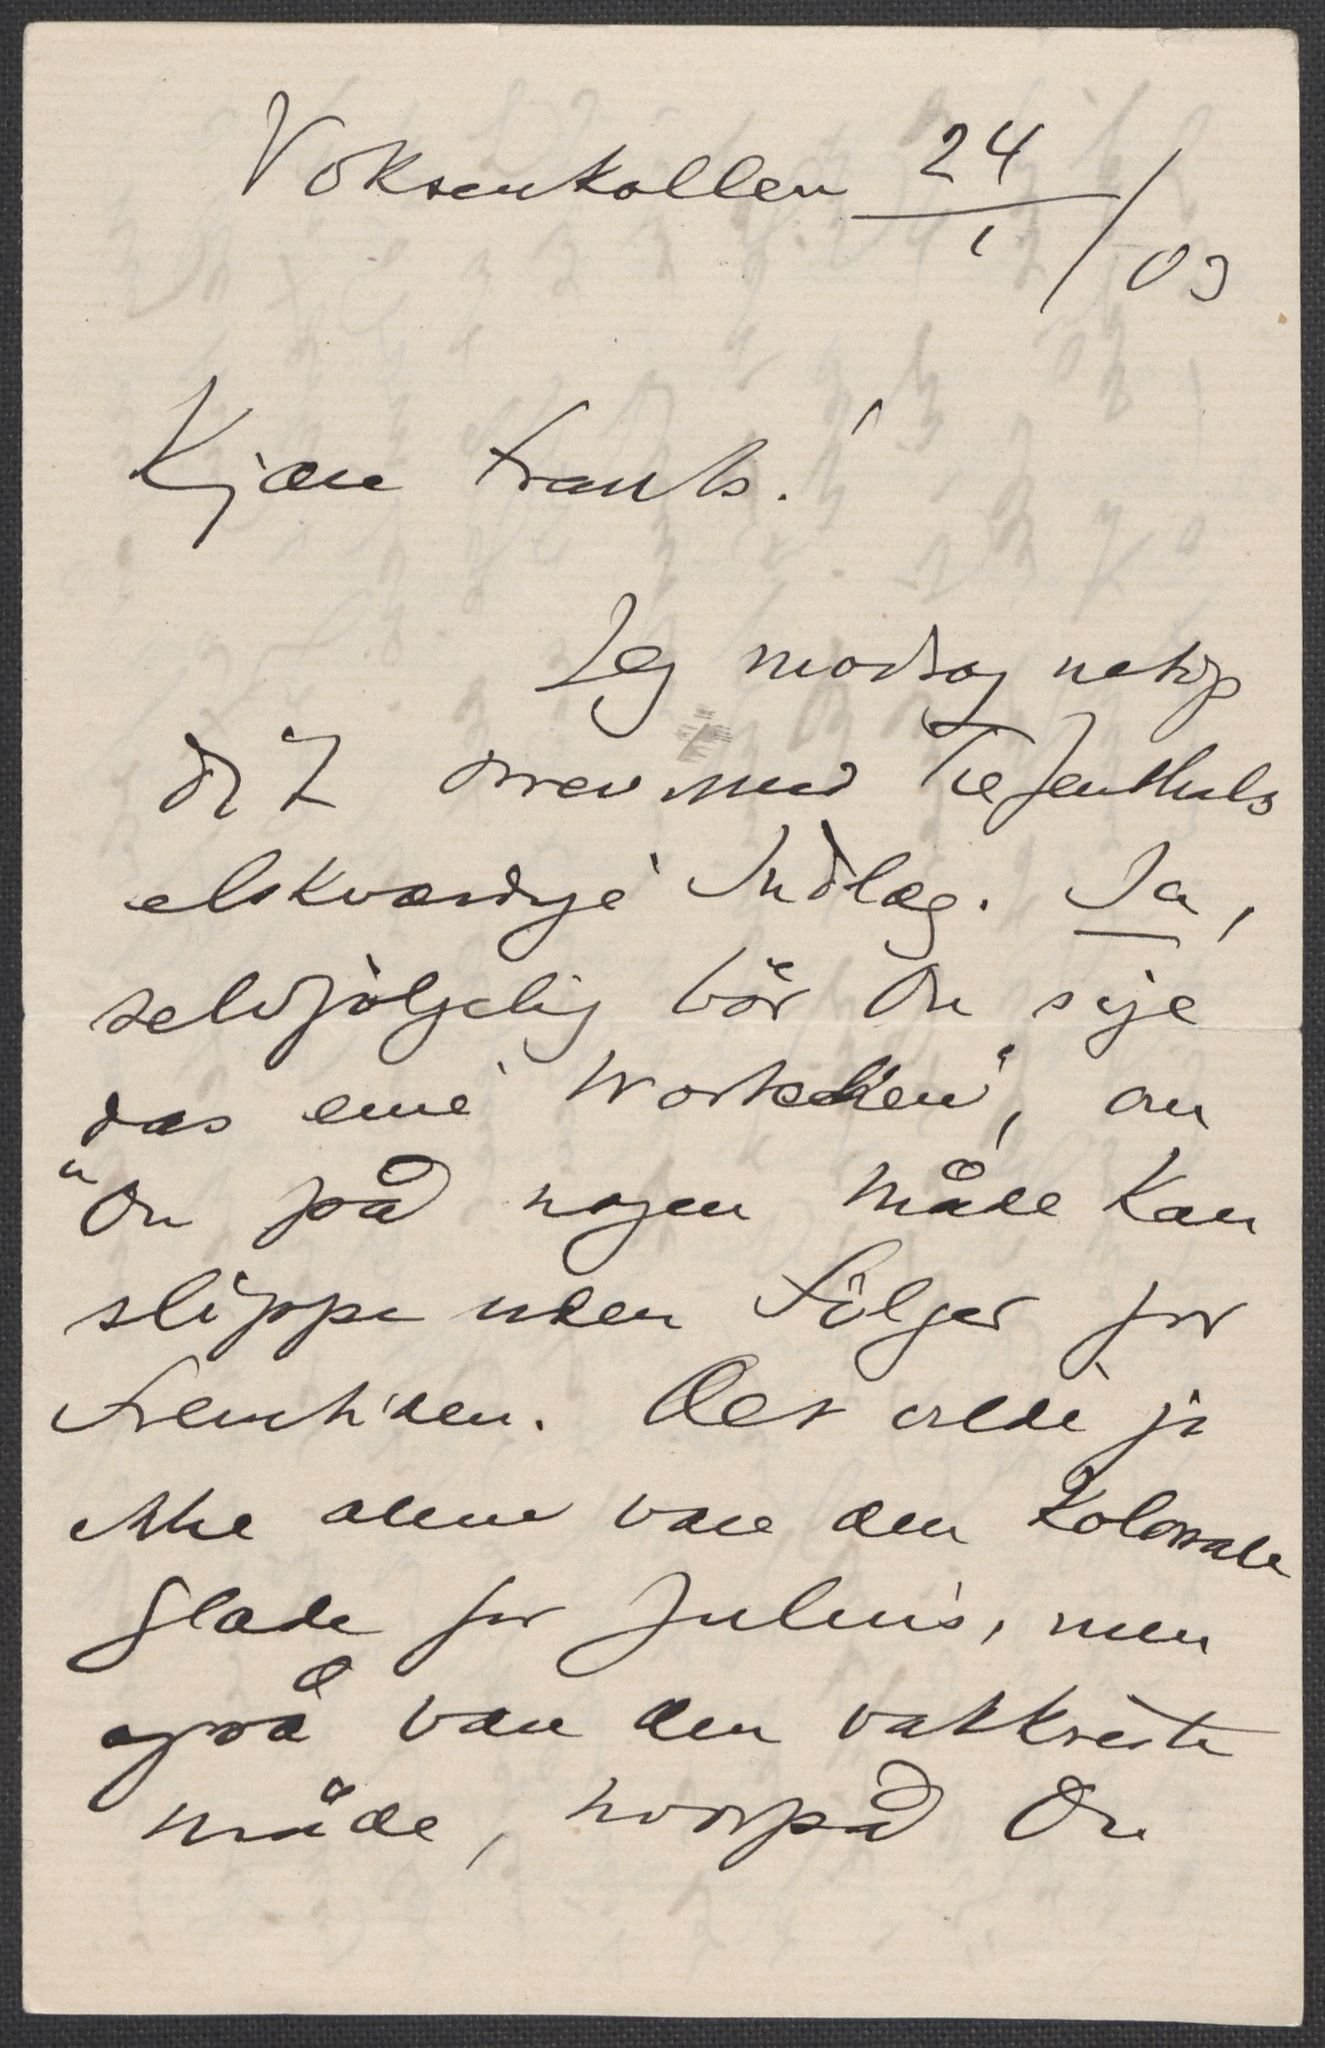 Voksenkollen 24/1/03
Kjære Frants!
Jeg modtog netop
dit brev med Tiefenthals
elskværdige Indlæg. Ja,
selvfölgelig bör Du sige
das eine Wortchen", om
"Du på nogen måde kan
slippe uden Fölger for
Fremtiden. Det vilde jo
ikke alene være den kolossale
Glæde for Julius, men
også være den vakkreste
måde, hvorpå Du